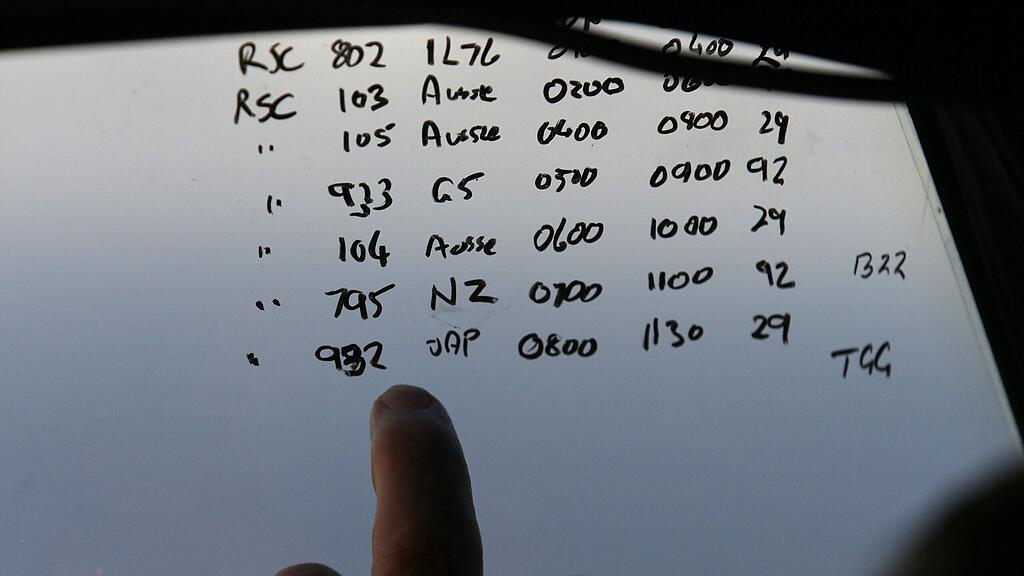 RSC 802 IL76 0400 29
RSC 103 Aussie 0200
" 105 Aussie 0400 0800 29
" 933 G5 0500 0900 92
" 104 Aussie 0600 1000 29
" 795 NZ 0700 1100 92 B22
" 932 JAP 0800 1130 29 TGG